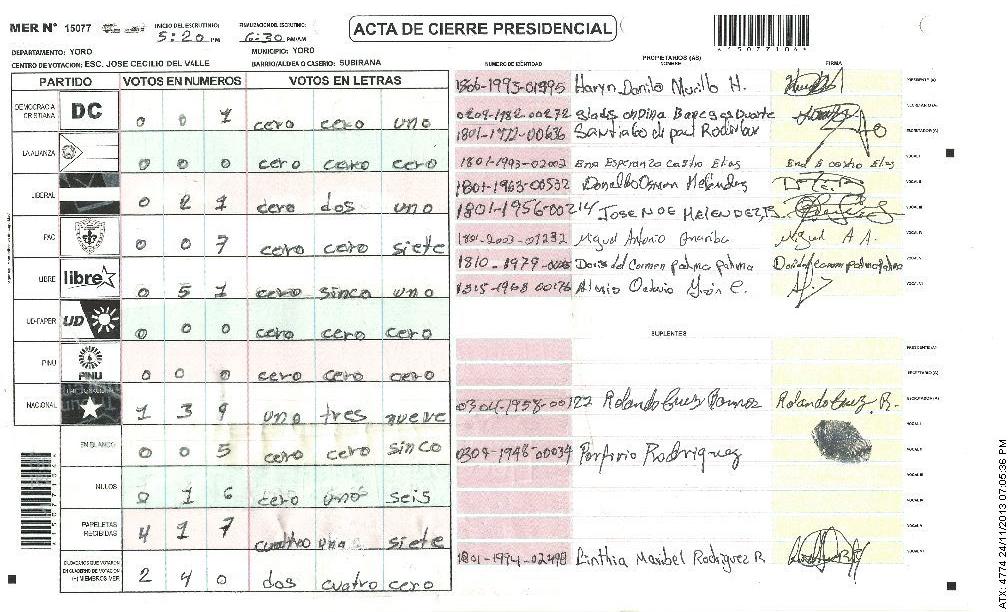 MER Nº 15077 INICIO DEL ESCRUTINIO: 5:20 PM FINALIZACION DEL ESCRUTINIO: 6:30 PM/AM ACTA DE CIERRE PRESIDENCIAL
DEPARTAMENTO: YORO MUNICIPIO: YORO
CENTRO DE VOTACION: ESC. JOSE CECILIO DEL VALLE BARRIO/ALDEA O CASERIO: SUBIRANA
PARTIDO VOTOS EN NUMEROS VOTOS EN LETRAS
DEMOCRACIA CRISTIANA DC 0 0 1 cero cero uno
LA ALIANZA 0 0 0 cero cero cero
LIBERAL 0 2 1 cero dos uno
PAC 0 0 7 cero cero siete
LIBRE libre 0 5 1 cero sinco uno
UD-FAPER UD 0 0 0 cero cero cero
PINU PINU 0 0 0 cero cero cero
NACIONAL 1 3 9 uno tres nueve
EN BLANCO 0 0 5 cero cero sinco
NULOS 0 1 6 cero uno seis
PAPELETAS RECIBIDAS 4 1 7 cuatro uno siete
CIUDADANOS QUE VOTARON EN CUADERNO DE VOTACION (+) MIEMBROS MER 2 4 0 dos cuatro cero
PROPIETARIOS (AS)
NUMERO DE IDENTIDAD NOMBRE FIRMA
Haryn Danilo Murillo H. PRESIDENTE (A)
0209-1982-00272 SECRETARIO (A)
1801-1972-00636 Santiago ESCRUTADOR (A)
1801-1993-02002 Ena Esperanza Castro Elias Ena E castro Elias VOCAL I
1801-1963-00532 Donaldo Osman Meléndez VOCAL II
1801-1956-00214 JOSE NOE MELENDEZ, B. VOCAL III
1801-2003-01232 Miguel Antonio Miguel A A. VOCAL IV
1810-1979- Doris del Carmen palma palma VOCAL V
00176 Octavio VOCAL VI
SUPLENTES
PRESIDENTE (A)
SECRETARIO (A)
00122 Rolando Cruz Rolando Cruz. R. ESCRUTADOR (A)
VOCAL I
00034 Porfirio Rodriguez VOCAL II
VOCAL III
VOCAL IV
VOCAL V
1801-1994-02498 Linthia Maribel Rodriguez R VOCAL VI
ATX: 4774 24/11/2013 07:05:36 PM